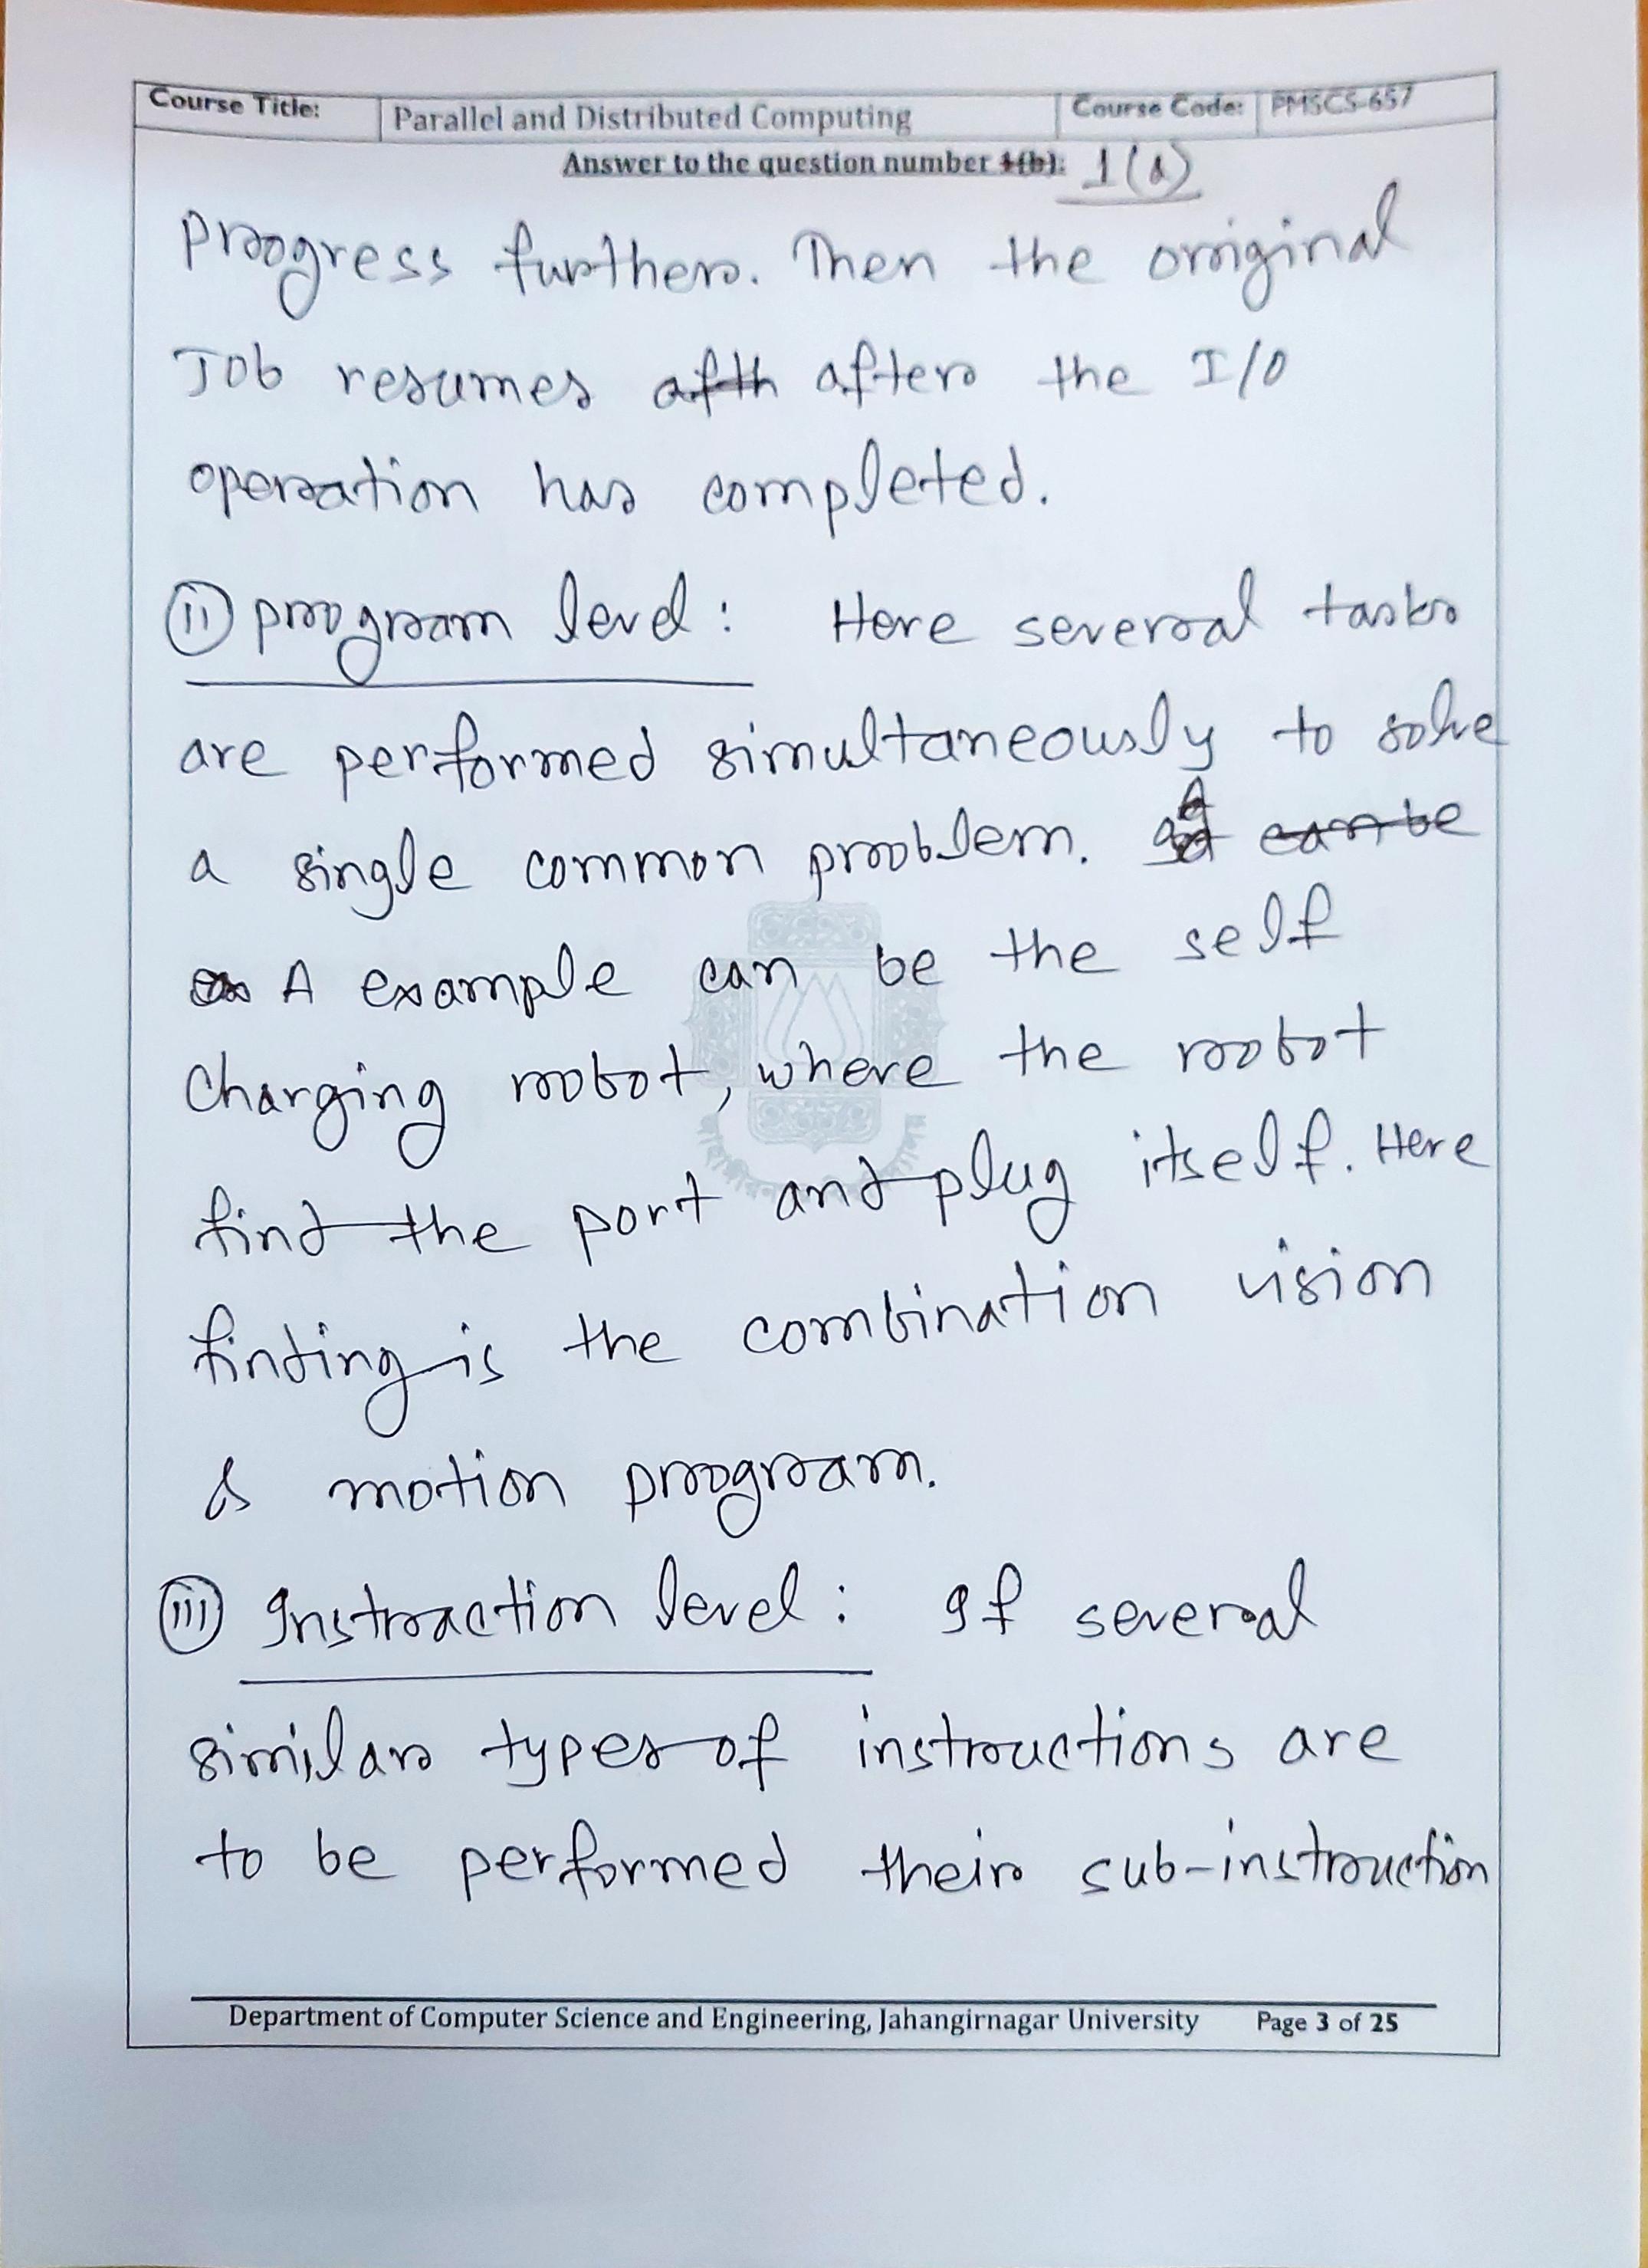 Course Title: Parallel and Distributed Computing Course Code: PMSCS-657
Answer to the question number 1(b): 1(a)
progress further. Then the original
Job resumes afth after the I/O
operation has completed.
(ii) program level: Here several tasks
are performed simultaneously to solve
a single common problem. can be
A example can be the self
Charging robot, where the robot
find the port and plug itself. Here
finding is the combination vision
& motion program.
(iii) Instraction level: If several
similar types of instructions are
to be performed their sub-instruction
Department of Computer Science and Engineering, Jahangirnagar University Page 3 of 25